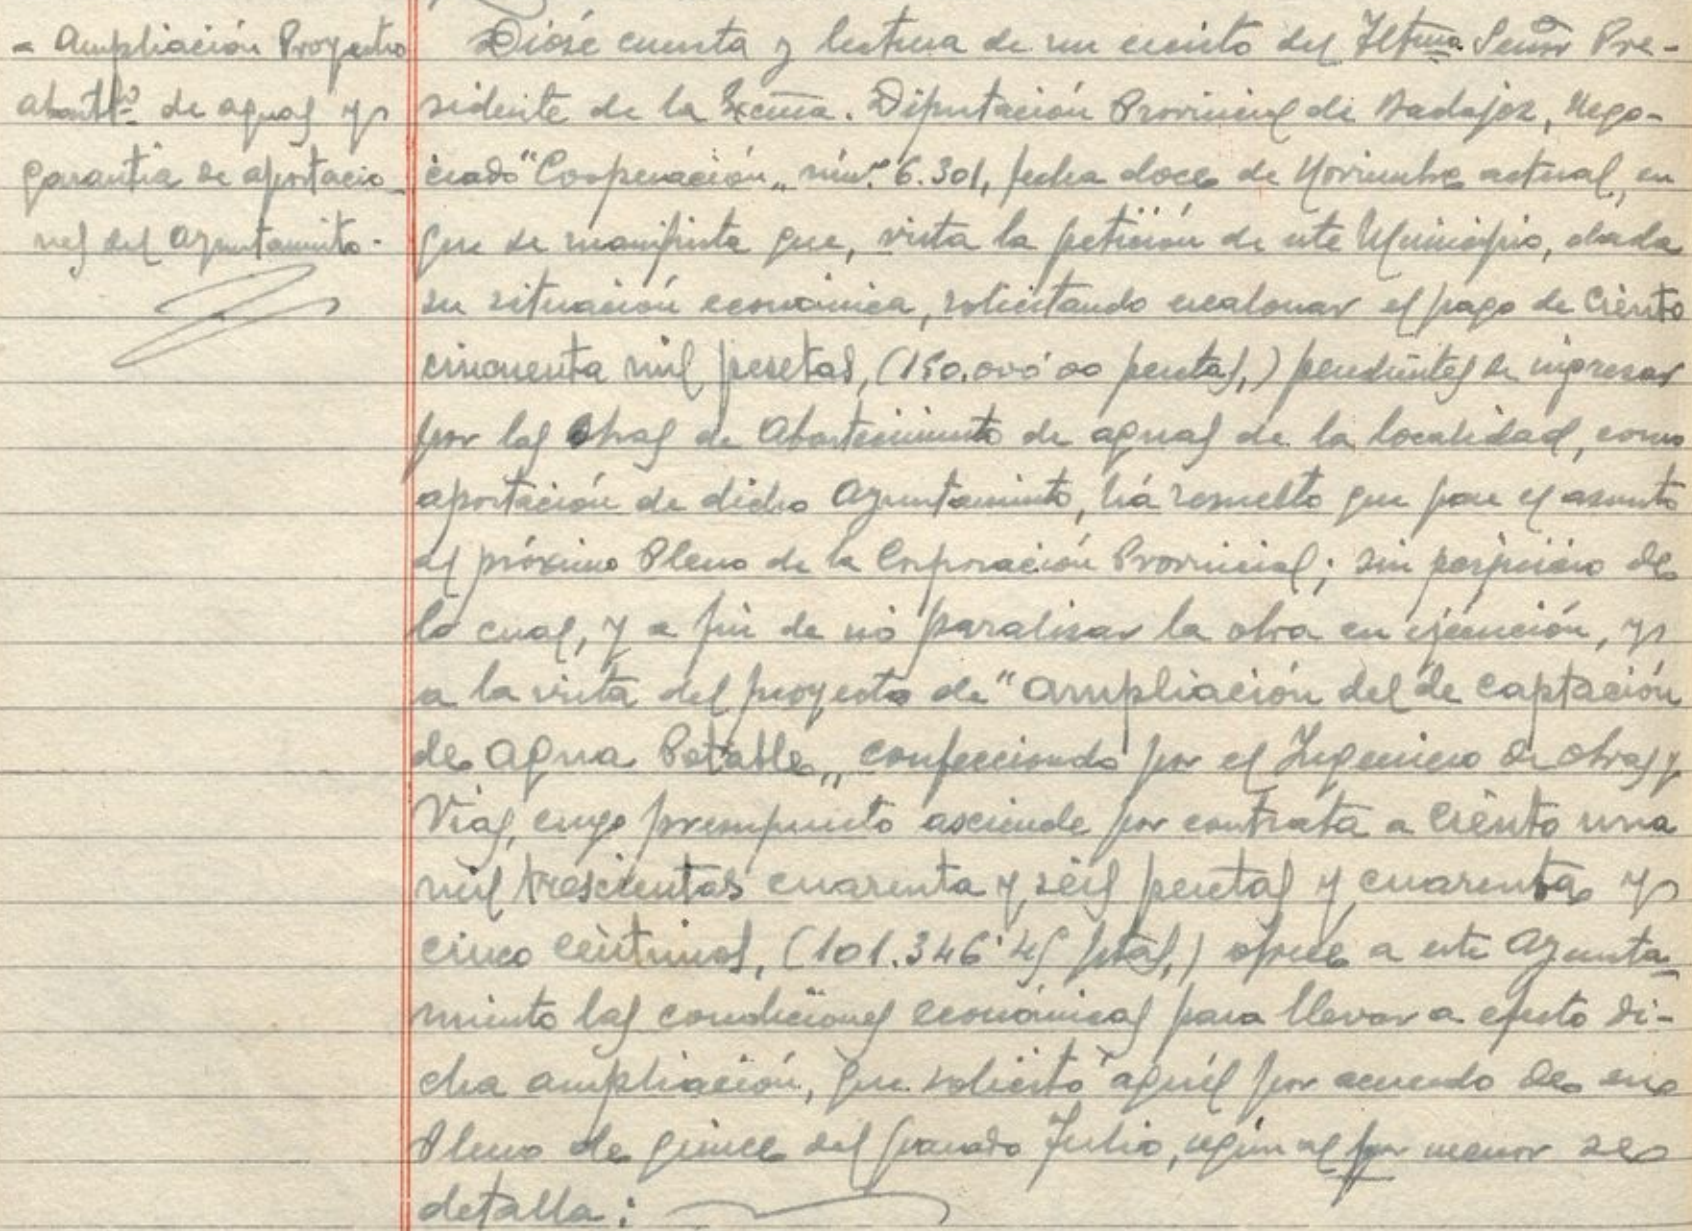 = Ampliación Proyecto
abastº de aguas y
garantia de aportacio-
nes del Ayuntamiento.
Dióse cuenta y lectura de un escrito del Iltmo. Señor Pre-
sidente de la Excma. Diputación Provincial de Badajoz, Nego-
ciado "Cooperación" núm. 6.301, fecha doce de Noviembre actual, en
que se manifiesta que, vista la petición de este Municipio, dada
su situación económica, solicitando escalonar el pago de Ciento
cincuenta mil pesetas, (150.000'00 pesetas,) pendientes de ingresar
por las Obras de Abastecimiento de aguas de la localidad, como
aportación de dicho Ayuntamiento, há resuelto que pase el asunto
al próximo Pleno de la Corporación Provincial; sin perjuicio de
lo cual, y a fin de nó paralizar la obra en ejecución, y
a la vista del proyecto de "Ampliación del de captación
de Agua Potable" confeccionado por el Ingeniero de Obras y
Vías, cuyo presupuesto asciende por contrata a Ciento una
mil trescientas cuarenta y seis pesetas y cuarenta y
cinco céntimos, (101.346'45 ptas,) ofrece a este Ayunta-
miento las condiciones económicas para llevar a efecto di-
cha ampliación, que solicitó aquél por acuerdo de su
Pleno de quince del pasado Julio, según al por menor se
detalla: